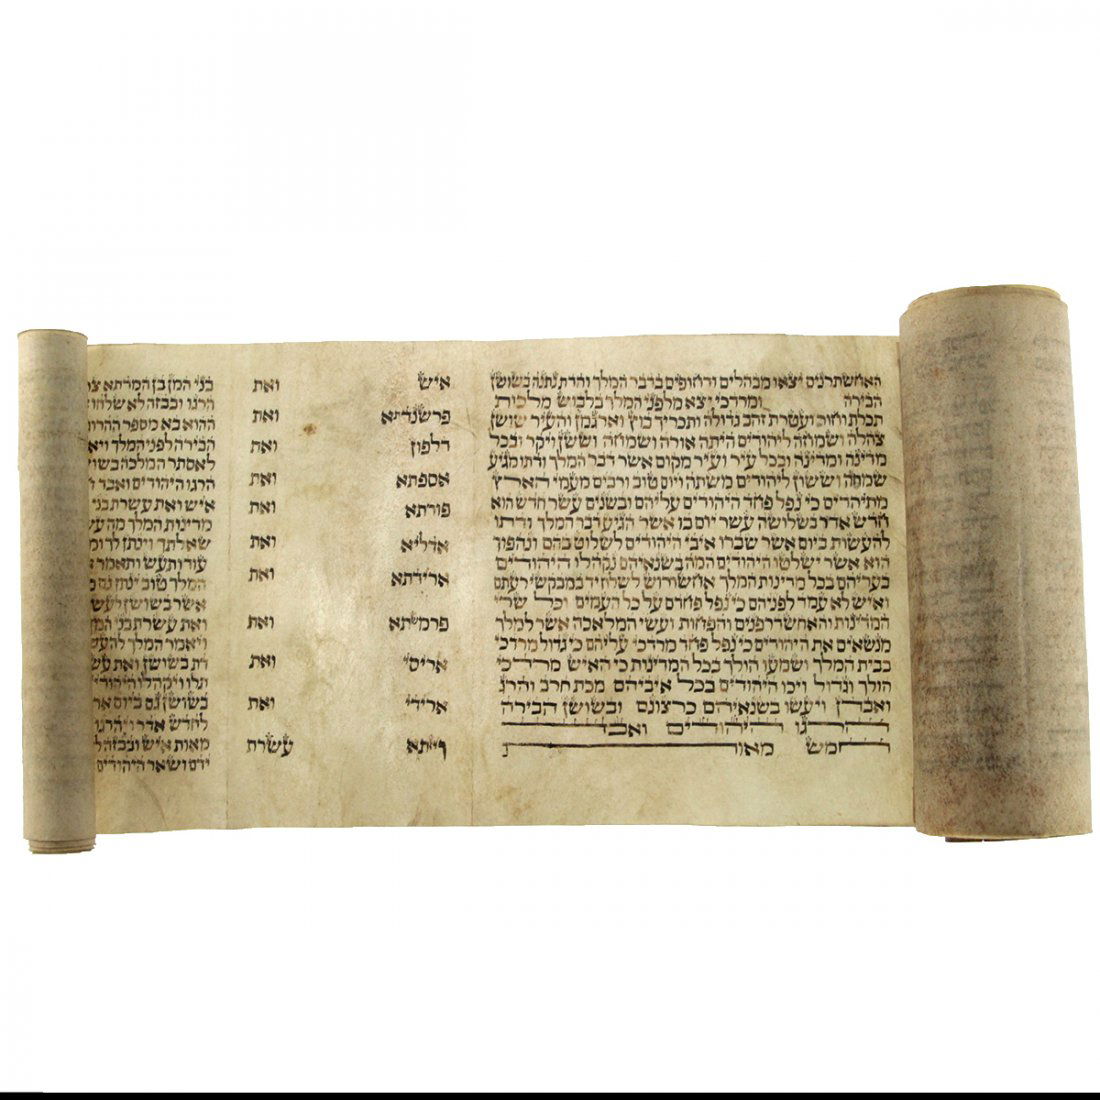 האחשתרנים יצאו מבהלים ודחופים בדבר המלך והדת נתנה בשושן
הבירה ומרדכי יצא מלפני המלך בלבוש מלכות
תכלת וחור ועטרת זהב גדולה ותכריך בוץ וארגמן והעיר שושן
צהלה ושמחה ליהודים היתה אורה ושמחה וששן ויקר ובכל
מדינה ומדינה ובכל עיר ועיר מקום אשר דבר המלך ודתו מגיע
שמחה וששון ליהודים משתה ויום טוב ורבים מעמי הארץ
מתיהדים כי נפל פחד היהודים עליהם ובשנים עשר חדש הוא
חדש אדר בשלושה עשר יום בו אשר הגיע דבר המלך ודתו
להעשות ביום אשר שברו איבי היהודים לשלוט בהם ונהפוך
הוא אשר ישלטו היהודים המה בשנאיהם נקהלו היהודים
בעריהם בכל מדינות המלך אחשורוש לשלח יד במבקשי רעתם
ואיש לא עמד לפניהם כי נפל פחדם על כל העמים וכל שרי
המדינות והאחשדרפנים והפחות ועשי המלאכה אשר למלך
מנשאים את היהודים כי נפל פחד מרדכי עליהם כי גדול מרדכי
בבית המלך ושמעו הולך בכל המדינות כי האיש מרדכי
הולך וגדול ויכו היהודים בכל איביהם מכת חרב והרג
ואבדן ויעשו בשנאיהם כרצונם ובשושן הבירה
הרגו היהודים ואבד
חמש מאות
איש ואת
פרשנדתא ואת
דלפון ואת
אספתא ואת
פורתא ואת
אדליא ואת
ארידתא ואת
פרמשתא ואת
אריסי ואת
ארידי ואת
ויזתא עשרת
בני המן בן המדתא
הרגו ובבזה לא שלחו
ההוא בא מספר ההרוגים
הבירה לפני המלך
לאסתר המלכה
הרגו היהודים ואבד
איש ואת עשרת בני
מדינות המלך מה
שאלתך וינתן לך ומה
עוד ותעש ותאמר
המלך טוב ינתן גם
אשר בשושן
ואת עשרת בני
ויאמר המלך
דת בשושן ואת
תלו ויקהלו
בשושן גם ביום
לחדש אדר ויהרגו
מאות איש ובבזה
ידם ושאר היהודים